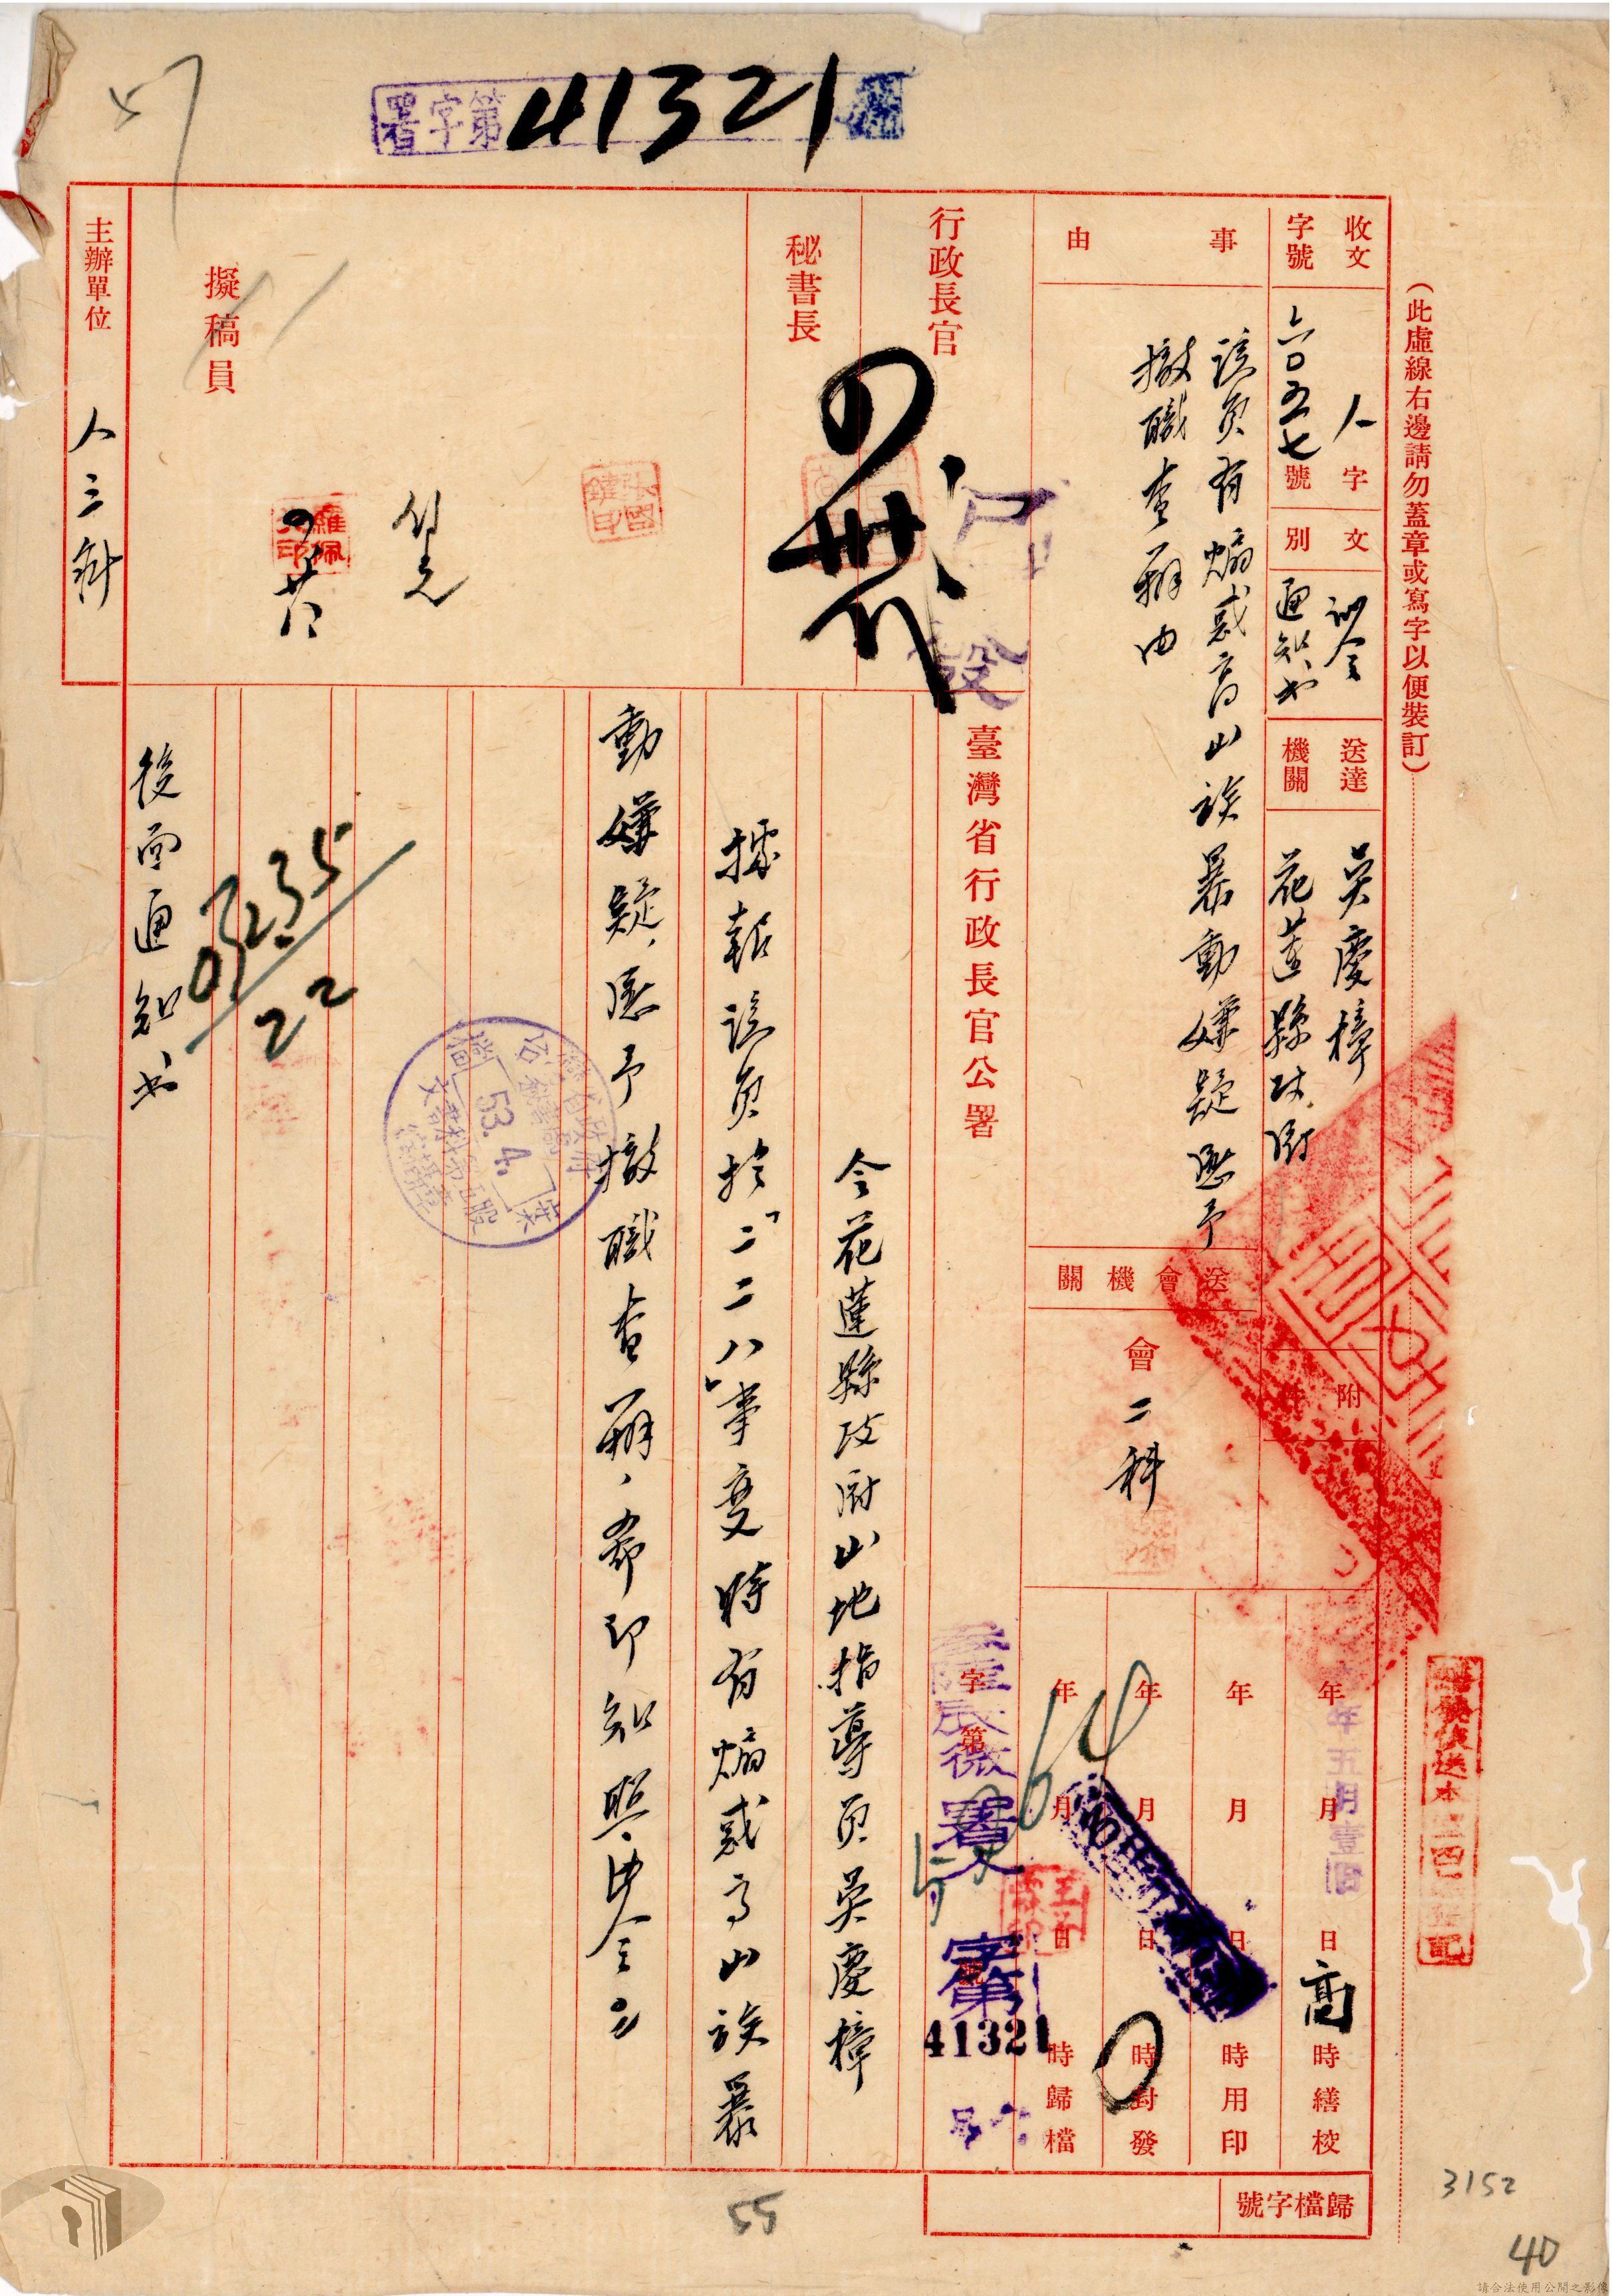 署字第 41321
（此虛線右邊請勿蓋章或寫字以便裝訂）
收文 人字
字號 六〇五七號
文別 訓令 通知書
送達機關 吳慶樟 花蓮縣政府
附件
事由
該員有煽惑高山族暴動嫌疑應予
撤職查辦由
送會機關
會二科
年 月 日 時 繕校
年 月 日 時 用印
年 月 日 時 封發
年 月 日 時 歸檔
五月壹日
高
64
行政長官
秘書長
擬稿員
主辦單位 人三科
張國鍵印
臺灣省行政長官公署
字第
署人字第
41321
令花蓮縣政府山地指導員吳慶樟
據報該員於「二二八」事變時有煽惑高山族暴
動嫌疑，應予撤職查辦，希即知照，此令。
後面通知書
0323.5
22
臺灣省政府秘書處
檔 53.4. 案
文書科第五股
歸檔字號
55
3152
40
請合法使用公開之影像